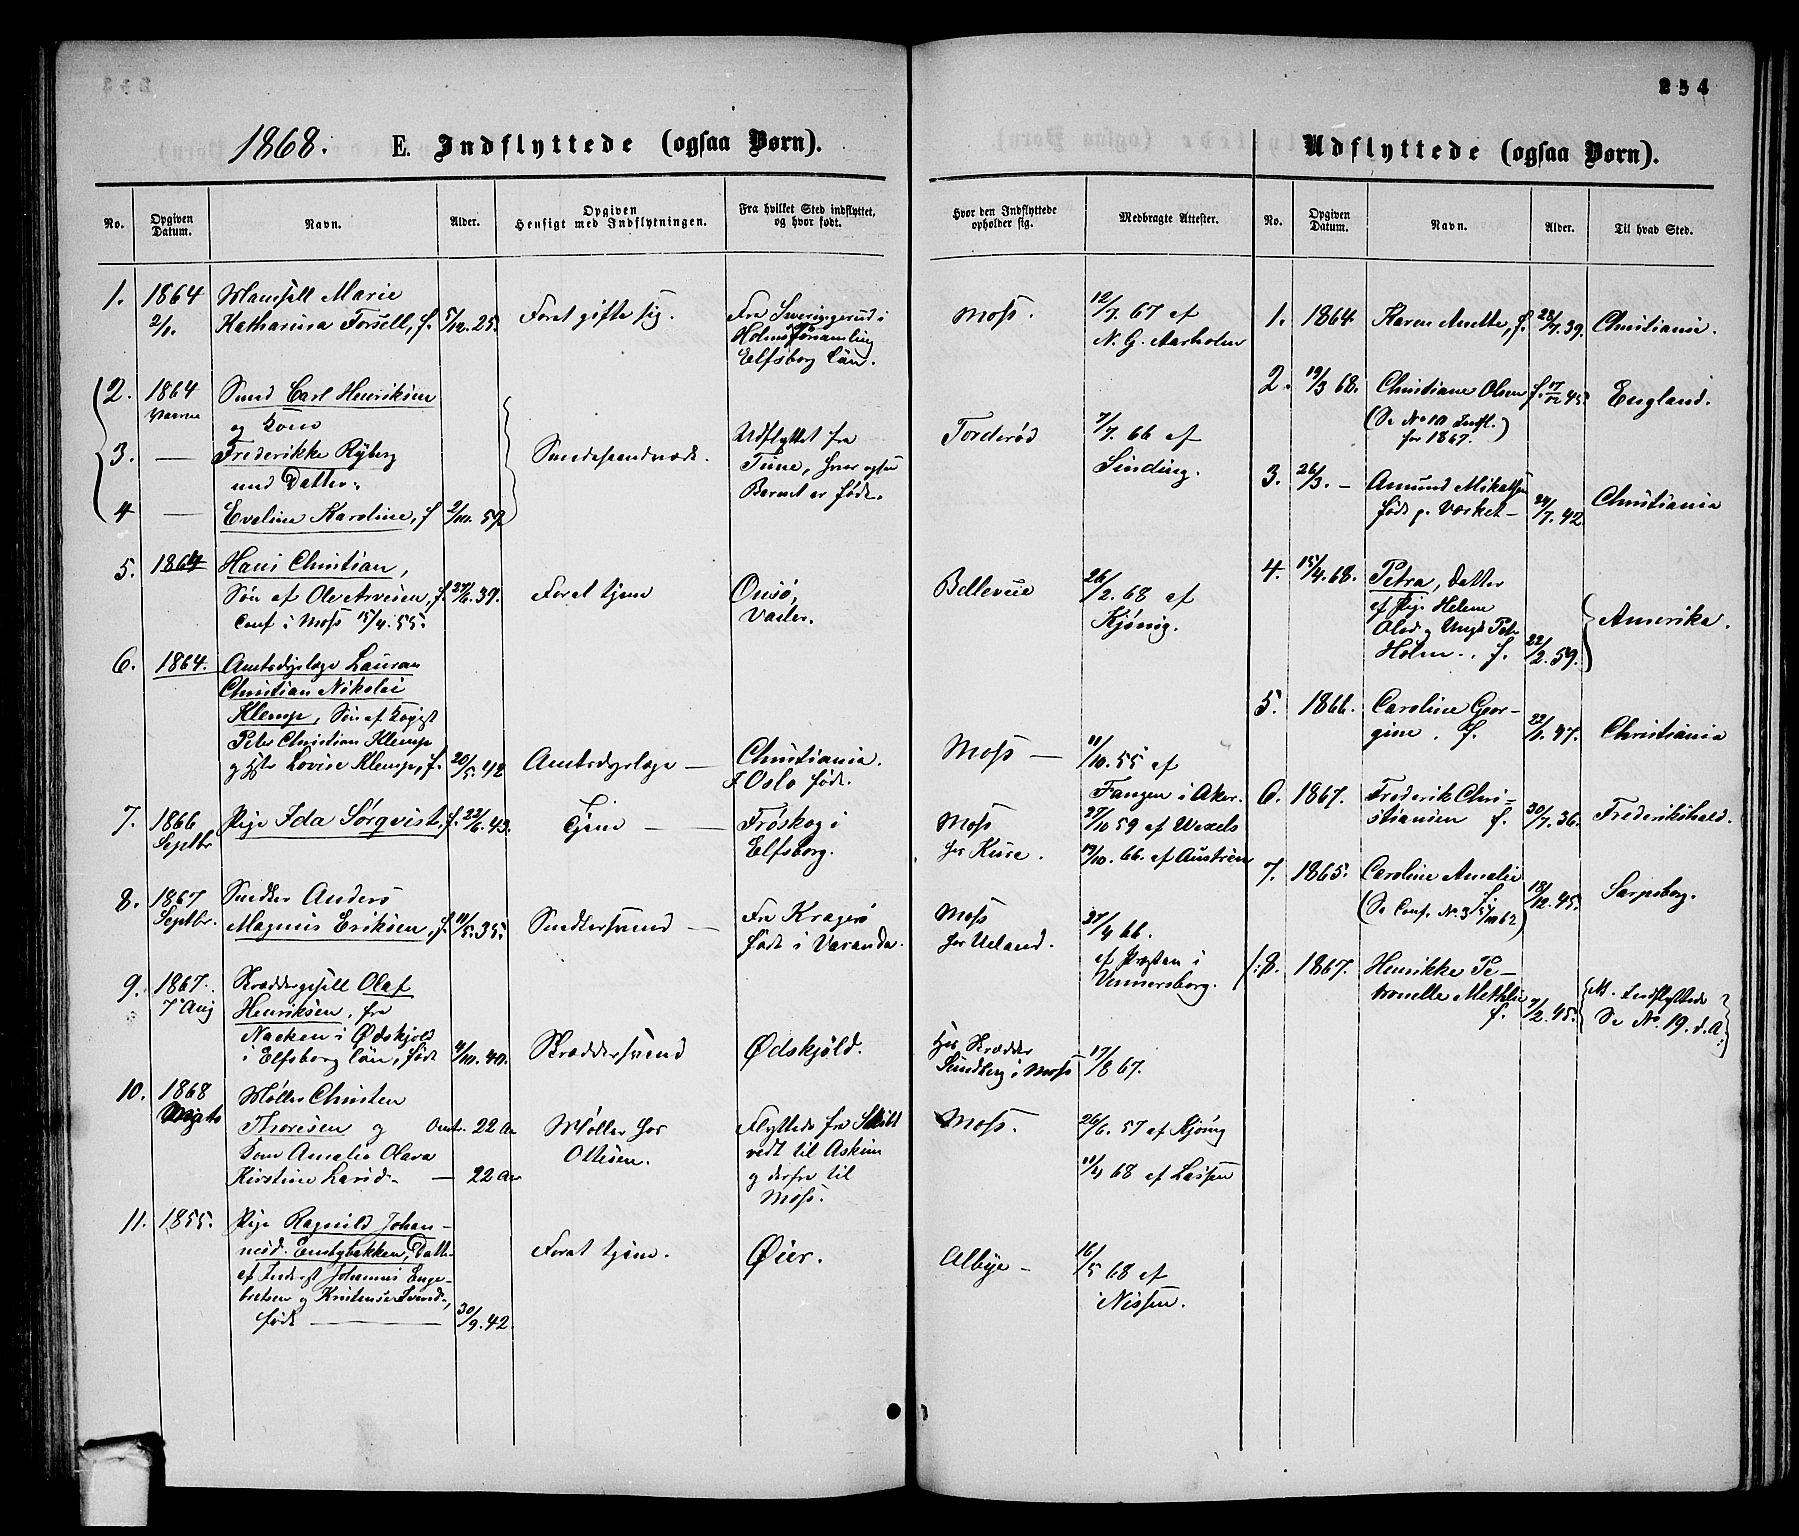 254
1868. E. Indflyttede (ogsaa Børn).
No. Opgiven Datum. Navn. Alder. Opgiven Hensigt med Indflytningen. Fra hvilket Sted indflyttet, og hvor født. Hvor den Indflyttede opholder sig. Medbragte Attester.
1. 1864 Mamsell Marie
2/1. Katharina Forsell, f. 5/12. 25. For at gifte sig.
Holms församling
Elfsborg Län.
Moss. 12/7. 67 af
N. G. Aarholm
2. 1864 Smed Carl Henriksen
og Kone
3. — Frederikke Ryberg
med Datter
4 — Eveline Karoline, f 2/10. 59.
Smedehaandværk.
Udflyttet fra
Tune, hvor ogsaa
Barnet er født.
Torderød
7/7. 66 af
Sinding.
5. 1864 Hans Christian,
Søn af Ole Arvesen, f. 27/6. 39.
Conf i Moss 15/4. 55.
For at tjene
Onsø,
Vaaler.
Bellevue
26/2. 68 af
Kjønig.
6. 1864. Amtsdyrlæge Lauran
Christian Nikolai
Klemp, Søn af
Peter Christian Klemp
og Lovise Klemp, f. 20/5. 42
Amtsdyrlæge — Christiania.
I Oslo født.
Moss — 11/10. 55 af
Fangen i Aker.
7. 1866 Pige Ida Sørqvist, f. 22/6. 43.
Septbr
Tjene — Frøskog i
Elfsborg.
Moss
hos Kure.
27/10 59 af Wexels
19/10. 66. af Austrén
8. 1867 Smedker Anders
Septbr. Magnus Eriksen, f. 11/5. 35.
Smedkersvend — Fra Kragerø
født i Varanda.
Moss
hos Ueland.
27/4 66.
af Præsten i
Vennersborg.
9. 1867. Skræddergesell Olaf
7 Aug Henriksen, fra
Nacken i Ødskjöld
i Elfsborg Län, født 4/10. 40.
Skræddersvend Ødskjöld.
Hos Skrædder
Sundberg i Moss
17/8 67.
10. 1868 Møller Christen
Thoresen og Omtr. 22 Aar
Kone Amalie Olava
Kirstine Larsd. — 22 Aar
Møller hos
Ottesen.
Flyttede fra
vedt til Askim
og derfra til
Moss.
Moss.
26/6. 57 af Kjønig
11/4 68 af Lassen
11. 1855. Pige Ragnild Johan-
nesd. Ensbybakken, Datter
af Inderst Johannes Enge-
bretsen og
født — 30/9. 42.
For at tjene. Øier.
Albye — 16/5 68 af
Nissen.
Udflyttede (ogsaa Børn).
No. Opgiven Datum. Navn. Alder. Til hvad Sted.
1. 1864. Karen Anette, f. 28/7. 39. Christiania.
2. 19/3 68. Christiane Olsen f. 17/12 45. England.
(Se No 10 Indfl.
for 1867.)
3. 26/3. — Amund Mikalsen
født p. Værket — 24/7. 42 Christiania
4. 15/4. 68. Petra, Datter
af Pige Helene
Olsd. og Ungk Petr
Holm., f. 22/2. 59. Amerika.
5. 1866. Caroline Geor-
gine. f. 22/1. 47. Christiania
6. 1867. Frederik Chri-
stiansen f. 30/7. 36. Frederikshald.
7. 1865. Caroline Amalie
(Se Conf. No 3 5/10 62) 18/12. 45. Sarpsborg.
8. 1867. Henrikke Pe-
tronelle
f. 7/2. 45. Indflyttede
Se No. 19. d. A.